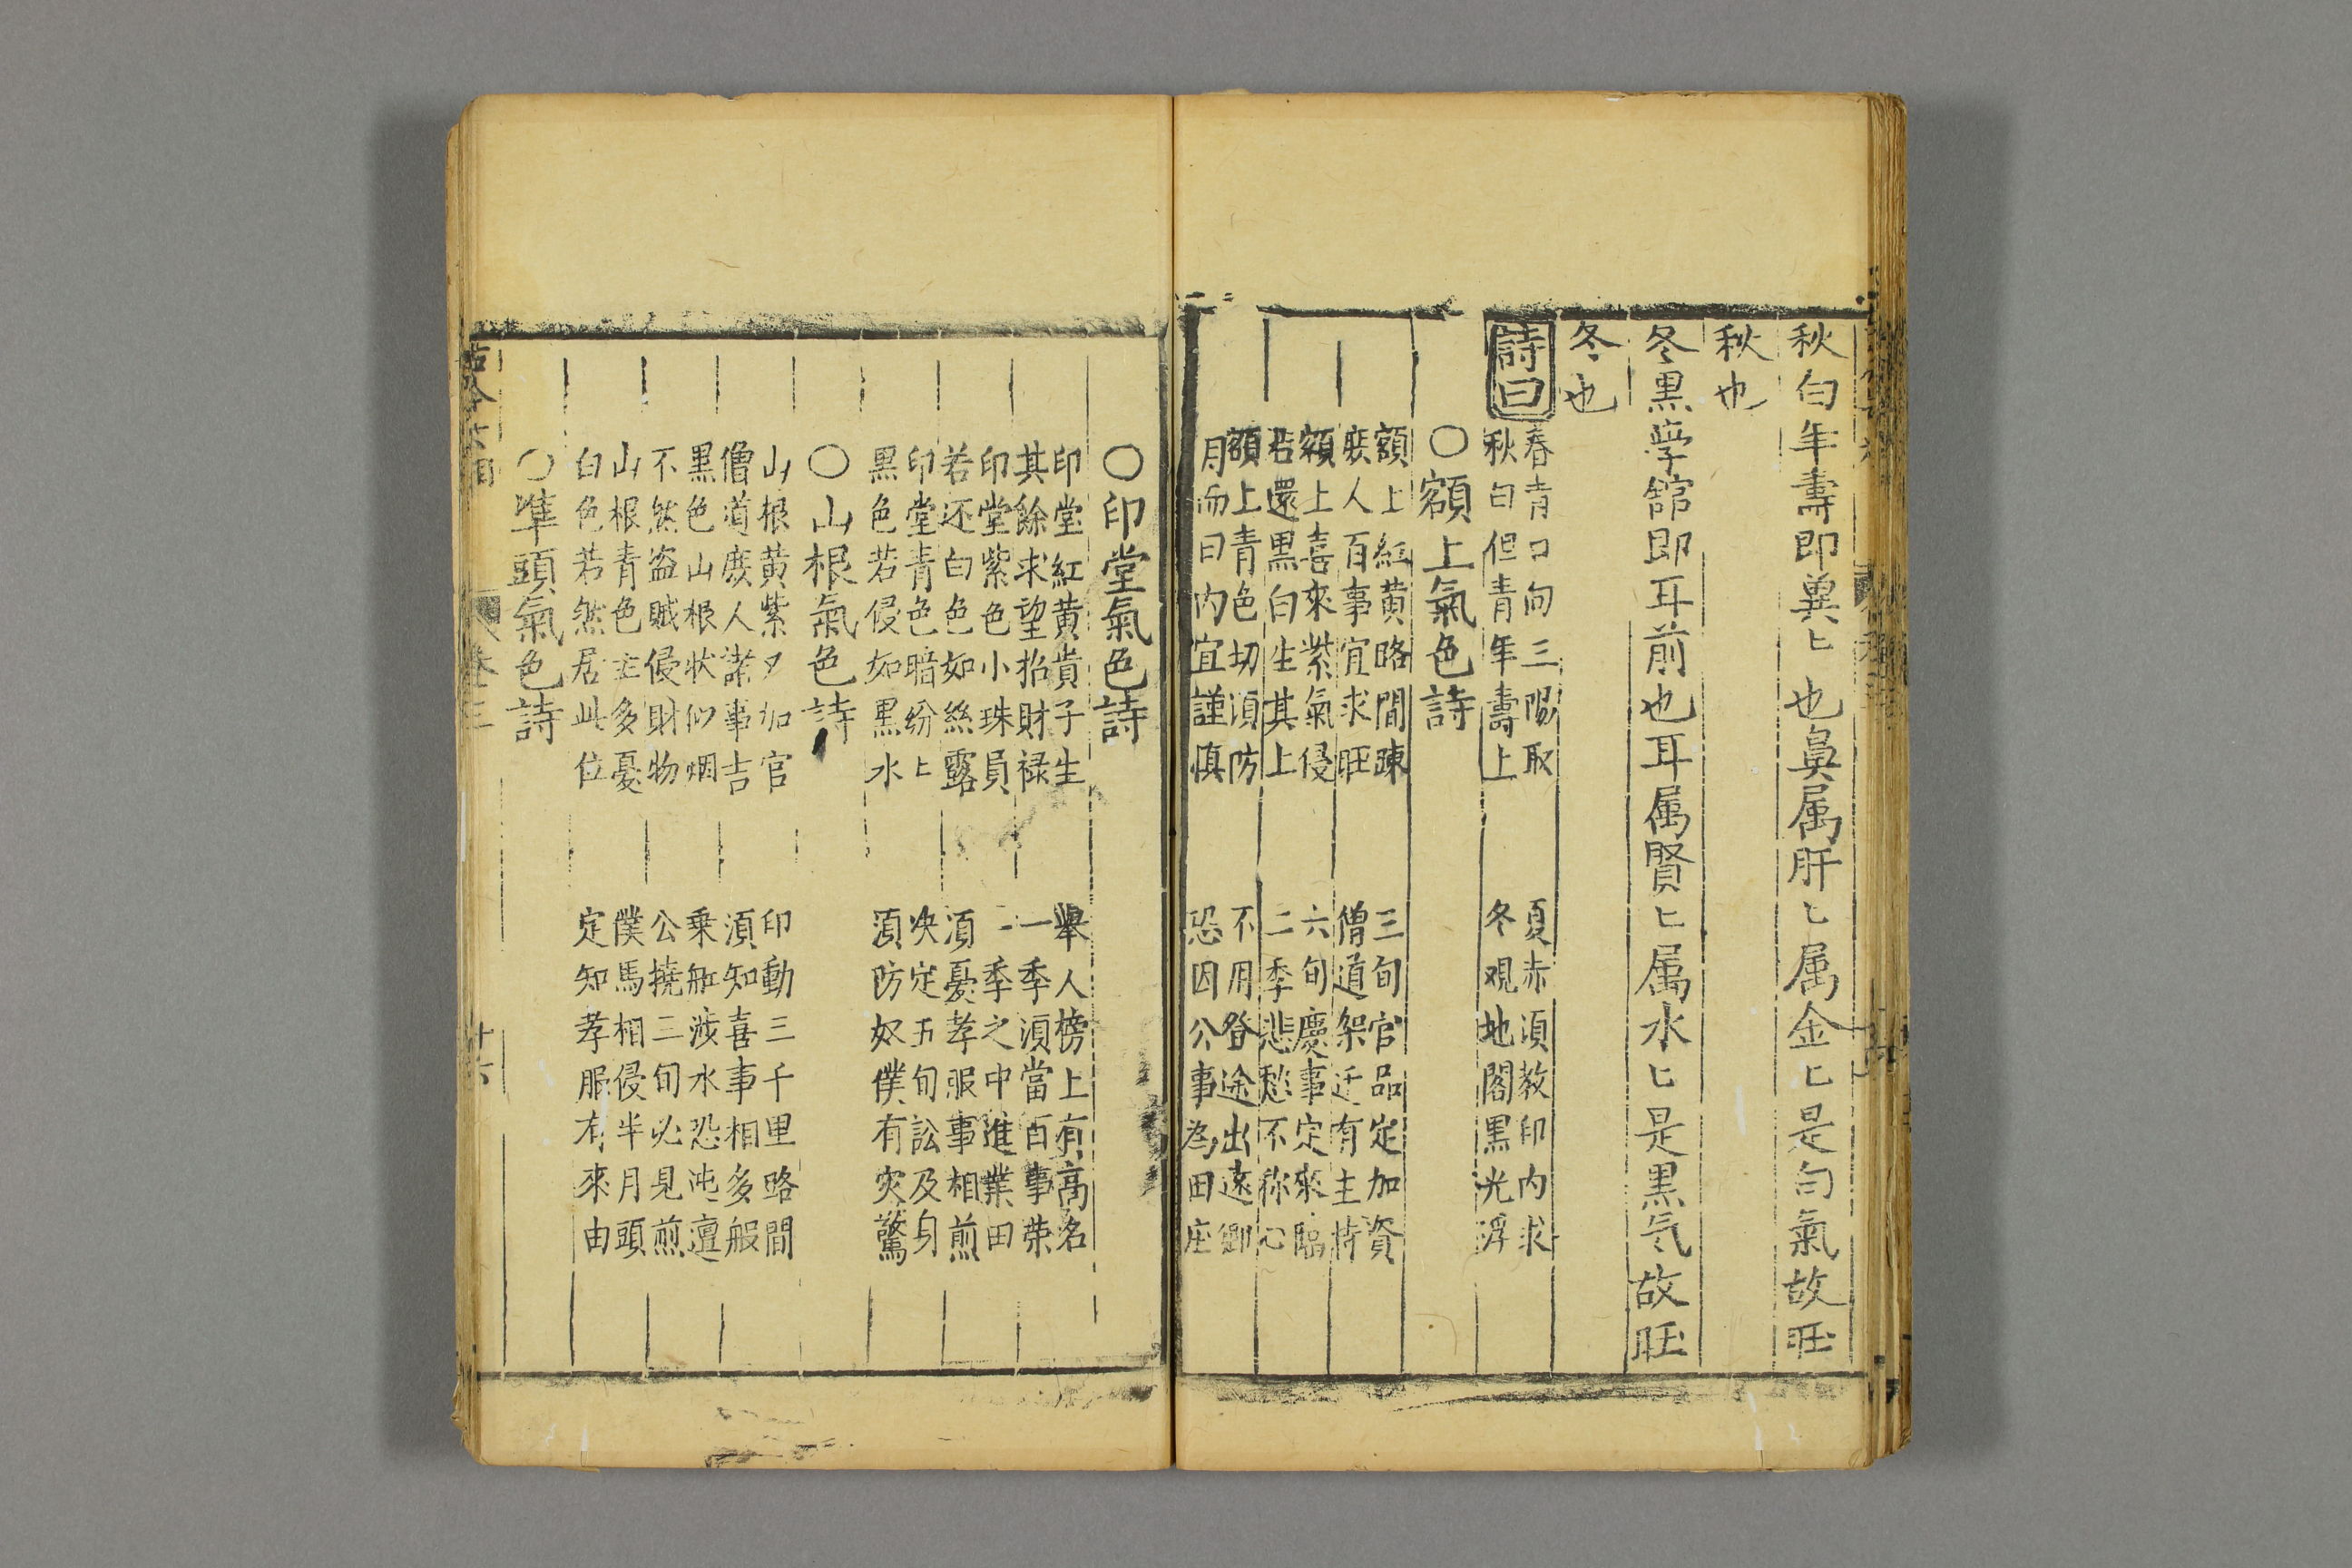 秋白年壽即鼻〻也鼻属肝〻属金〻是白氣故旺
秋也
冬黒學舘即耳前也耳属賢〻属水〻是黒气故旺
冬也
詩曰
春青口向三陽取 夏赤湏教印内求
秋白但青年壽上 冬观地閣黒光浮
〇額上氣色詩
額上紅黄路間踈 三旬官品定加資
庻人百事宜求旺 僧道架迁有主持
額上喜來紫氣侵 六旬慶事定來臨
若還黒白生其上 二季悲愁不称心
額上青色切湏防 不用登途出遠鄉
月而日内宜謹慎 恐因公事為田庄
〇印堂氣色詩
印堂紅黄貴子生 舉人榜上有高名
其餘求望招財禄 一季湏當百事荣
印堂紫色小珠員 一季之中進業田
若还白色如絲露 湏憂孝服事相煎
印堂青色暗纷〻 决定五旬訟及身
黒色若侵如黒水 湏防奴僕有灾驚
〇山根氣色詩
山根黄紫夕加官 印動三千里路間
僧道庻人諸事吉 湏知喜事相多般
黒色山根状似烟 乗舡涉水恐迍邅
不然盗贼侵財物 公撓二旬必見煎
山根青色主多憂 僕馬相侵半月頭
白色若然居此位 定知孝服有來由
〇準頭氣色詩
古今 相
卷三
十六